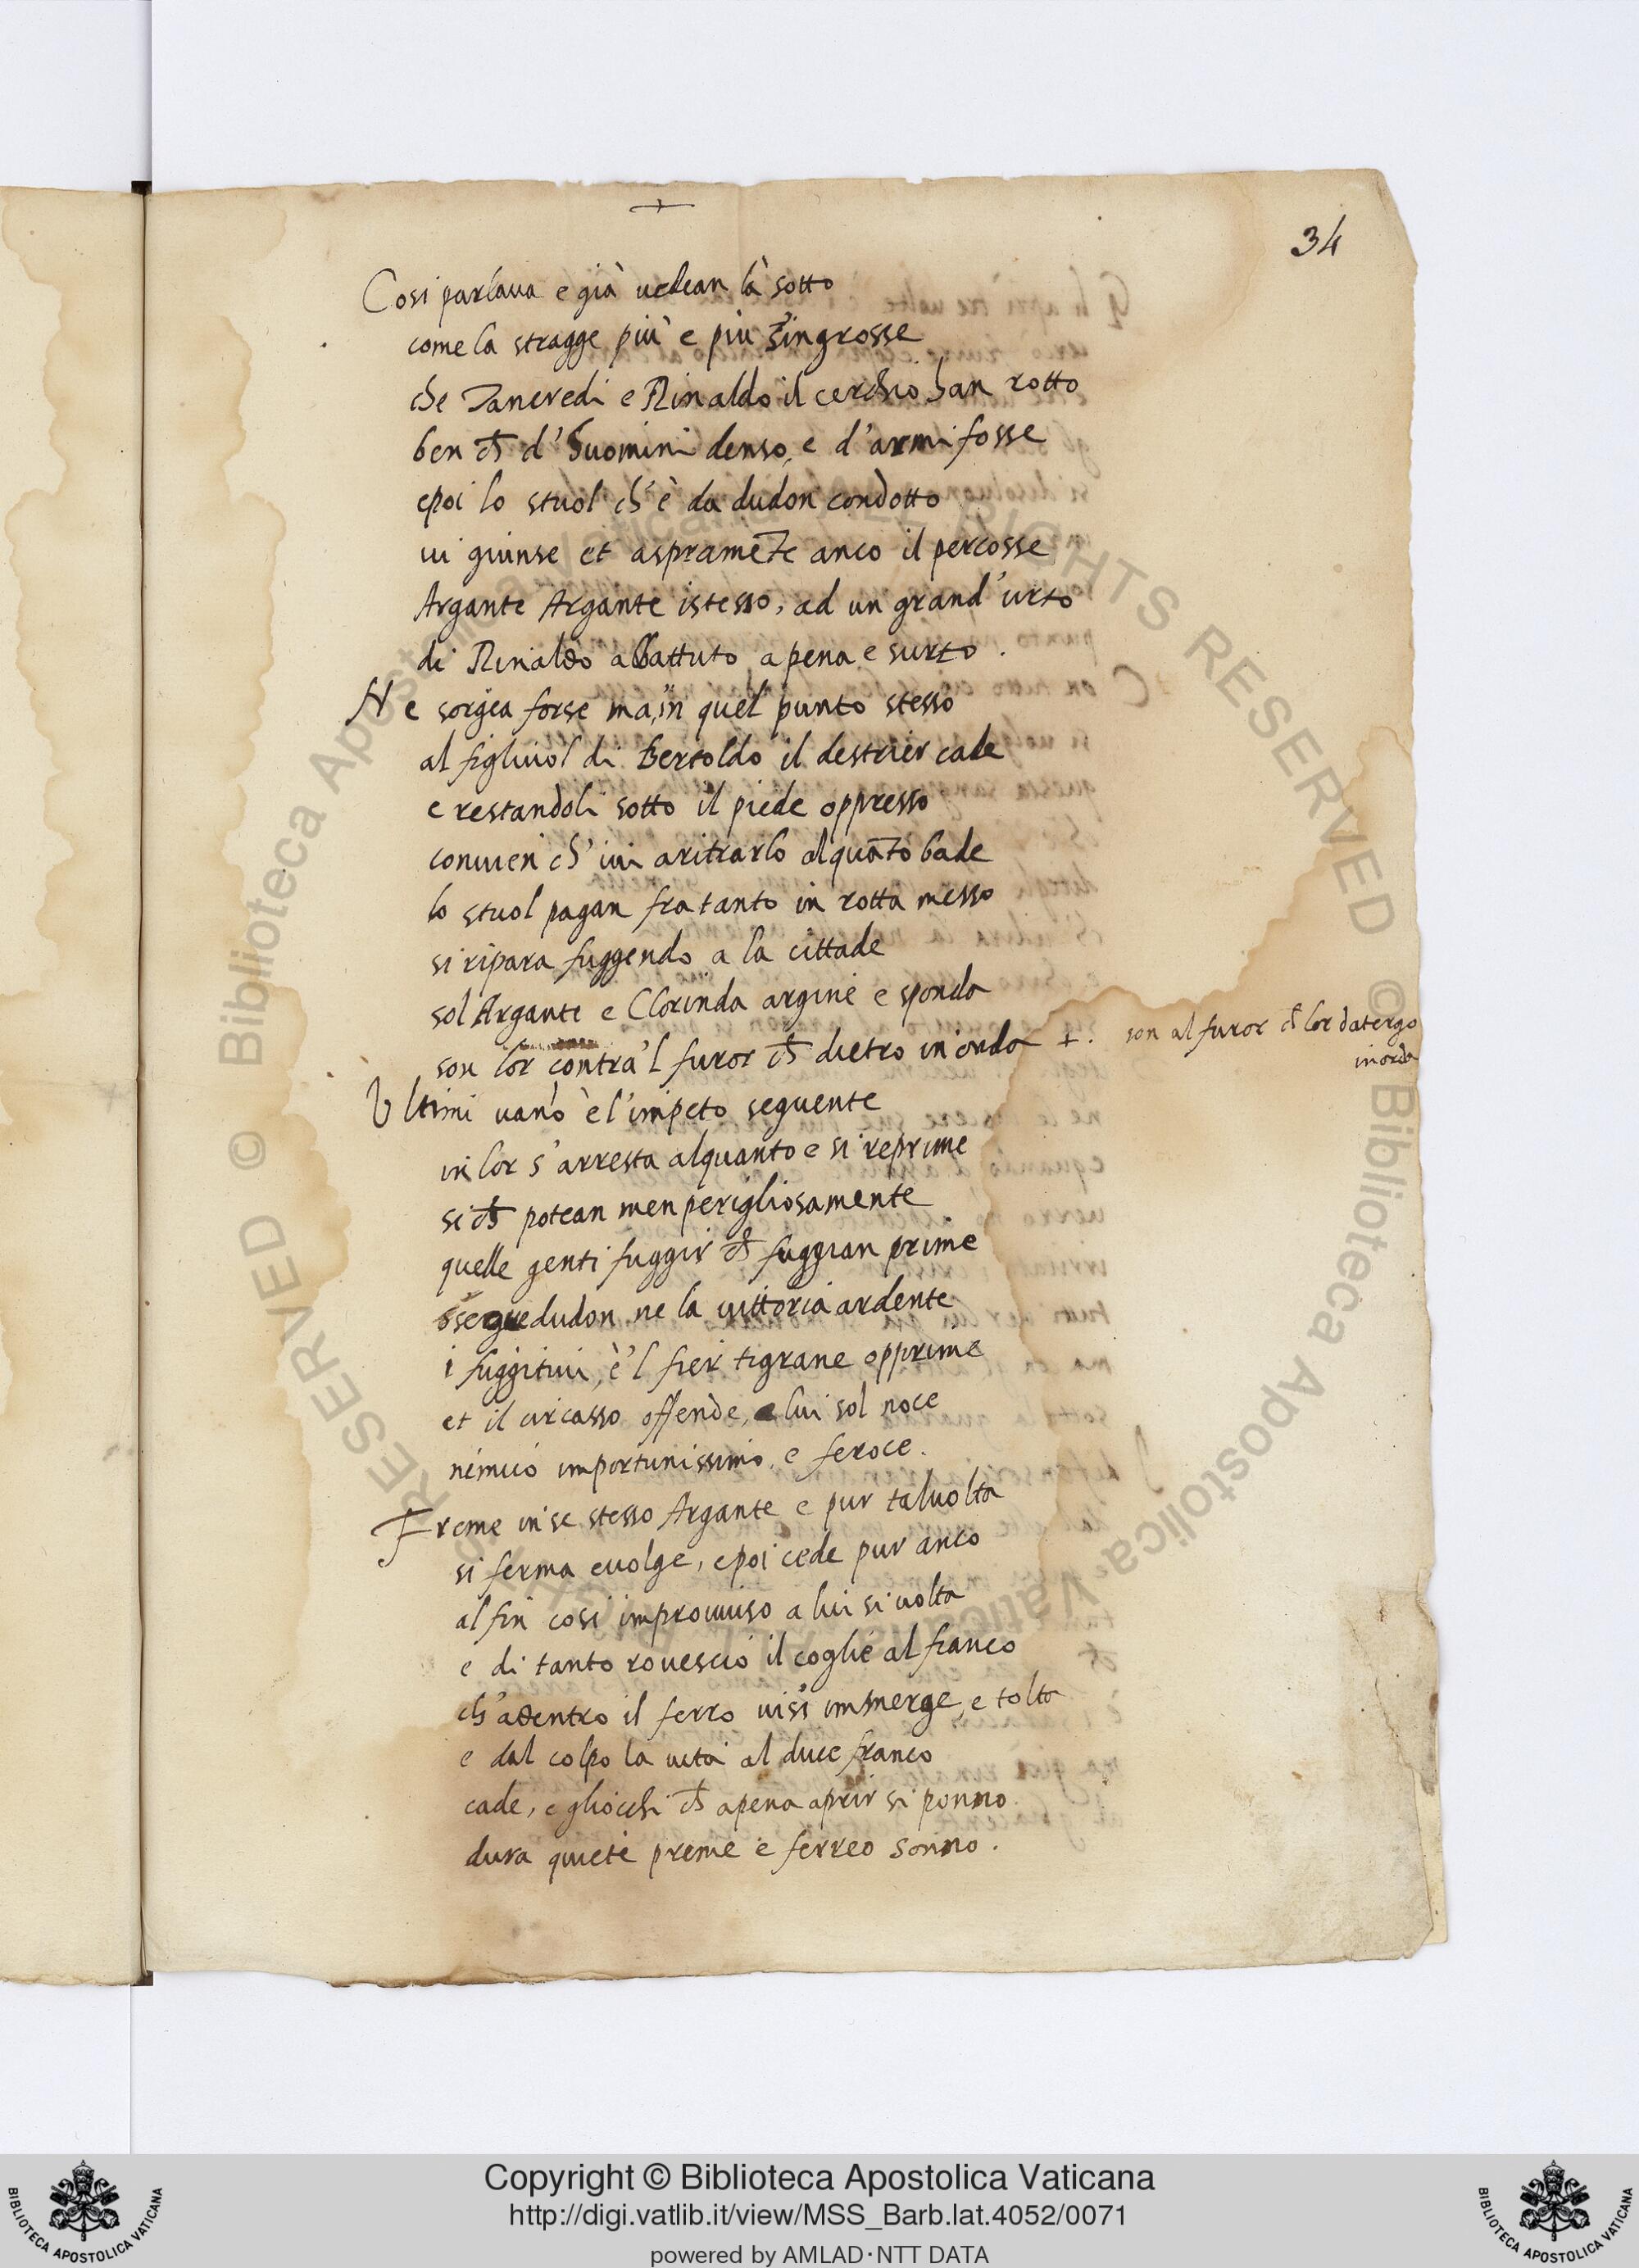 34
Cosi parlaua e già vedean là sotto
come la stragge più e più s'ingrosse
che Tancredi e Rinaldo il cerchio han rotto
ben ch̃ d'huomini denso, e d'armi fosse
e poi lo stuol ch'è da dudon condotto
ui giunse et aspramẽte anco il percosse
Argante Argante istesso, ad un grand'urto
di Rinaldo abbattuto a pena e surto.
Ne sorgea forse ma, in quel punto stesso
al figliuol di Bertoldo il destrier cade
e restandoli sotto il piede oppresso
conuien ch'iui a ritrarlo alquãto bade
lo stuol pagan fra tanto in rotta messo
si ripara fuggendo a la cittade
sol Argante e Clorinda argine e sponda
son lor contra'l furor ch̃ dietro inonda +.
son al furor ch̃ lor da tergo
inonda
Vltimi uano e l'impeto seguente
in lor s'arresta alquanto e si reprime
si ch̃ potean men perigliosamente
quelle genti fuggir ch̃ fuggian prime
segue dudon ne la uittoria ardente
i fuggitiui, e'l fier tigrane opprime
et il circasso offende, e lui sol noce
nemico importunissimo e feroce.
Freme in se stesso Argante e pur taluolta
si ferma e uolge, e poi cede pur anco
al fin cosi improuuiso a lui si uolta
e di tanto rouescio il coglie al fianco
ch'adentro il ferro ui s'immerge, e tolta
e dal colpo la uita al duce franco
cade, e gliocchi ch̃ a pena aprir si ponno
dura quiete preme e ferreo sonno.
Copyright © Biblioteca Apostolica Vaticana
http://digi.vatlib.it/view/MSS_Barb.lat.4052/0071
powered by AMLAD·NTT DATA
BIBLIOTECA APOSTOLICA VATICANA
BIBLIOTECA APOSTOLICA VATICANA